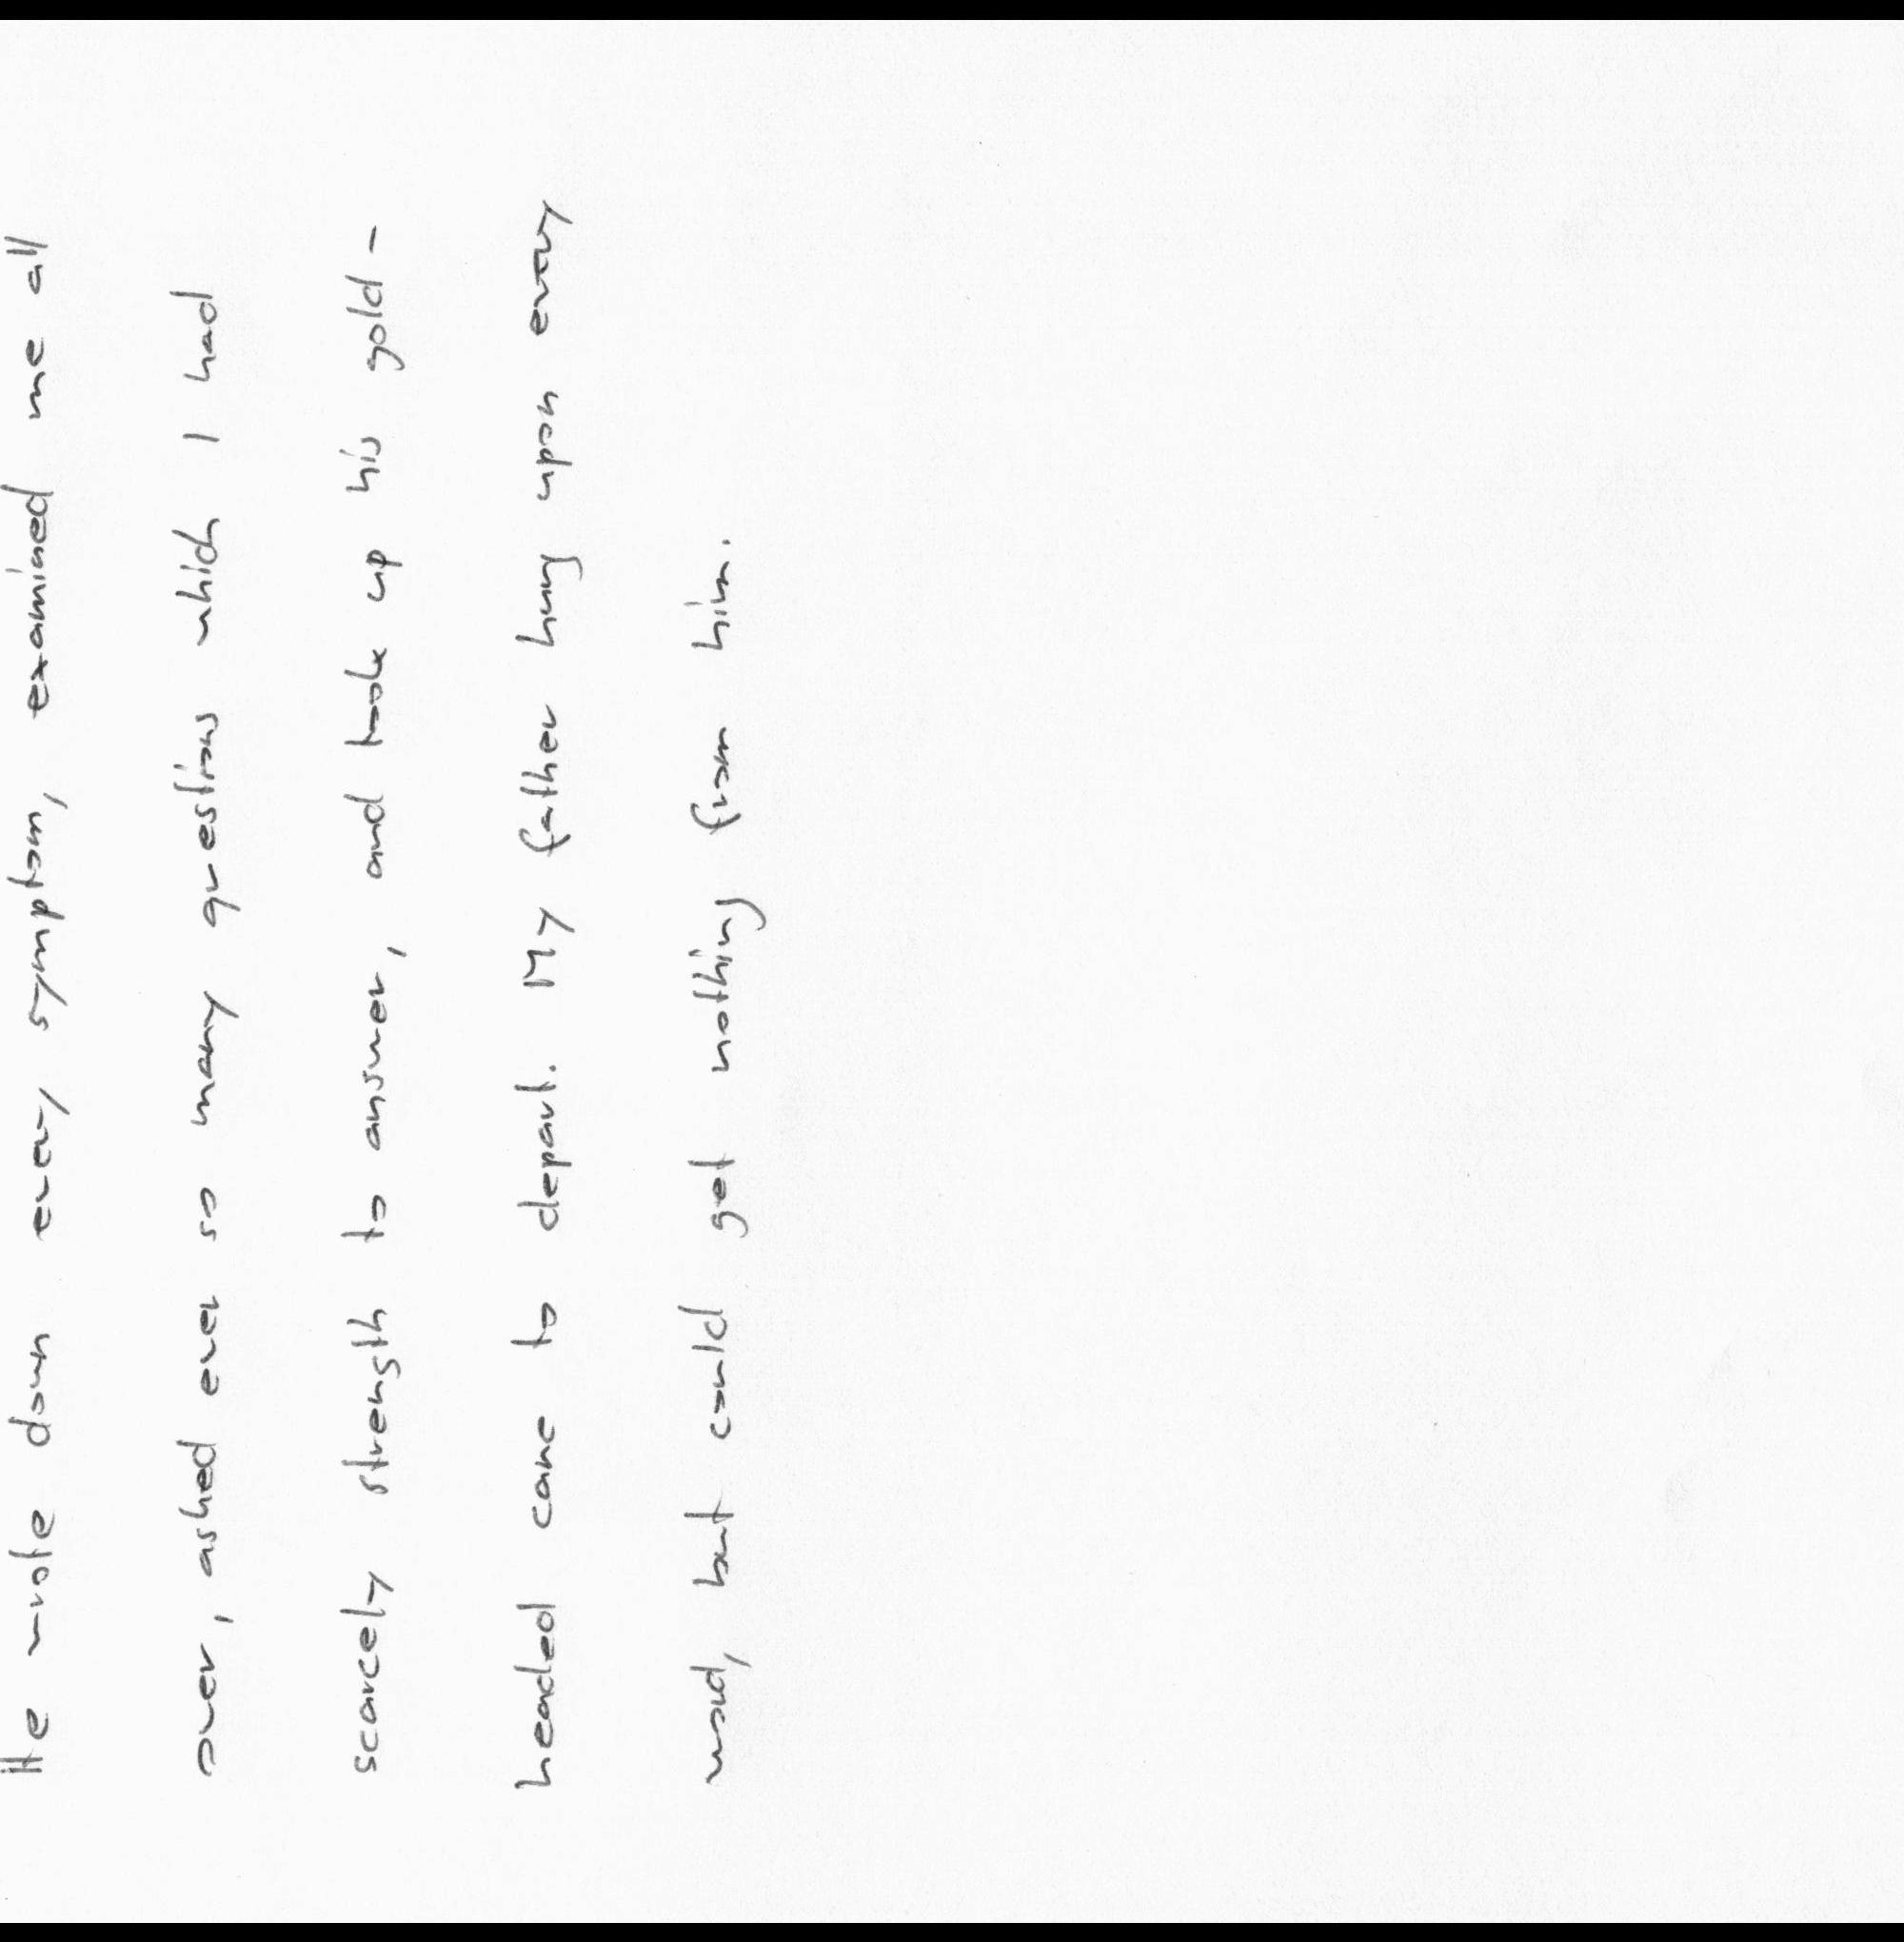 He wrote down every symptom, examined me all
over, asked ever so many questions which I had
scarcely strength to answer, and took up his gold-
headed cane to depart. My father hung upon every
word, but could get nothing from him.